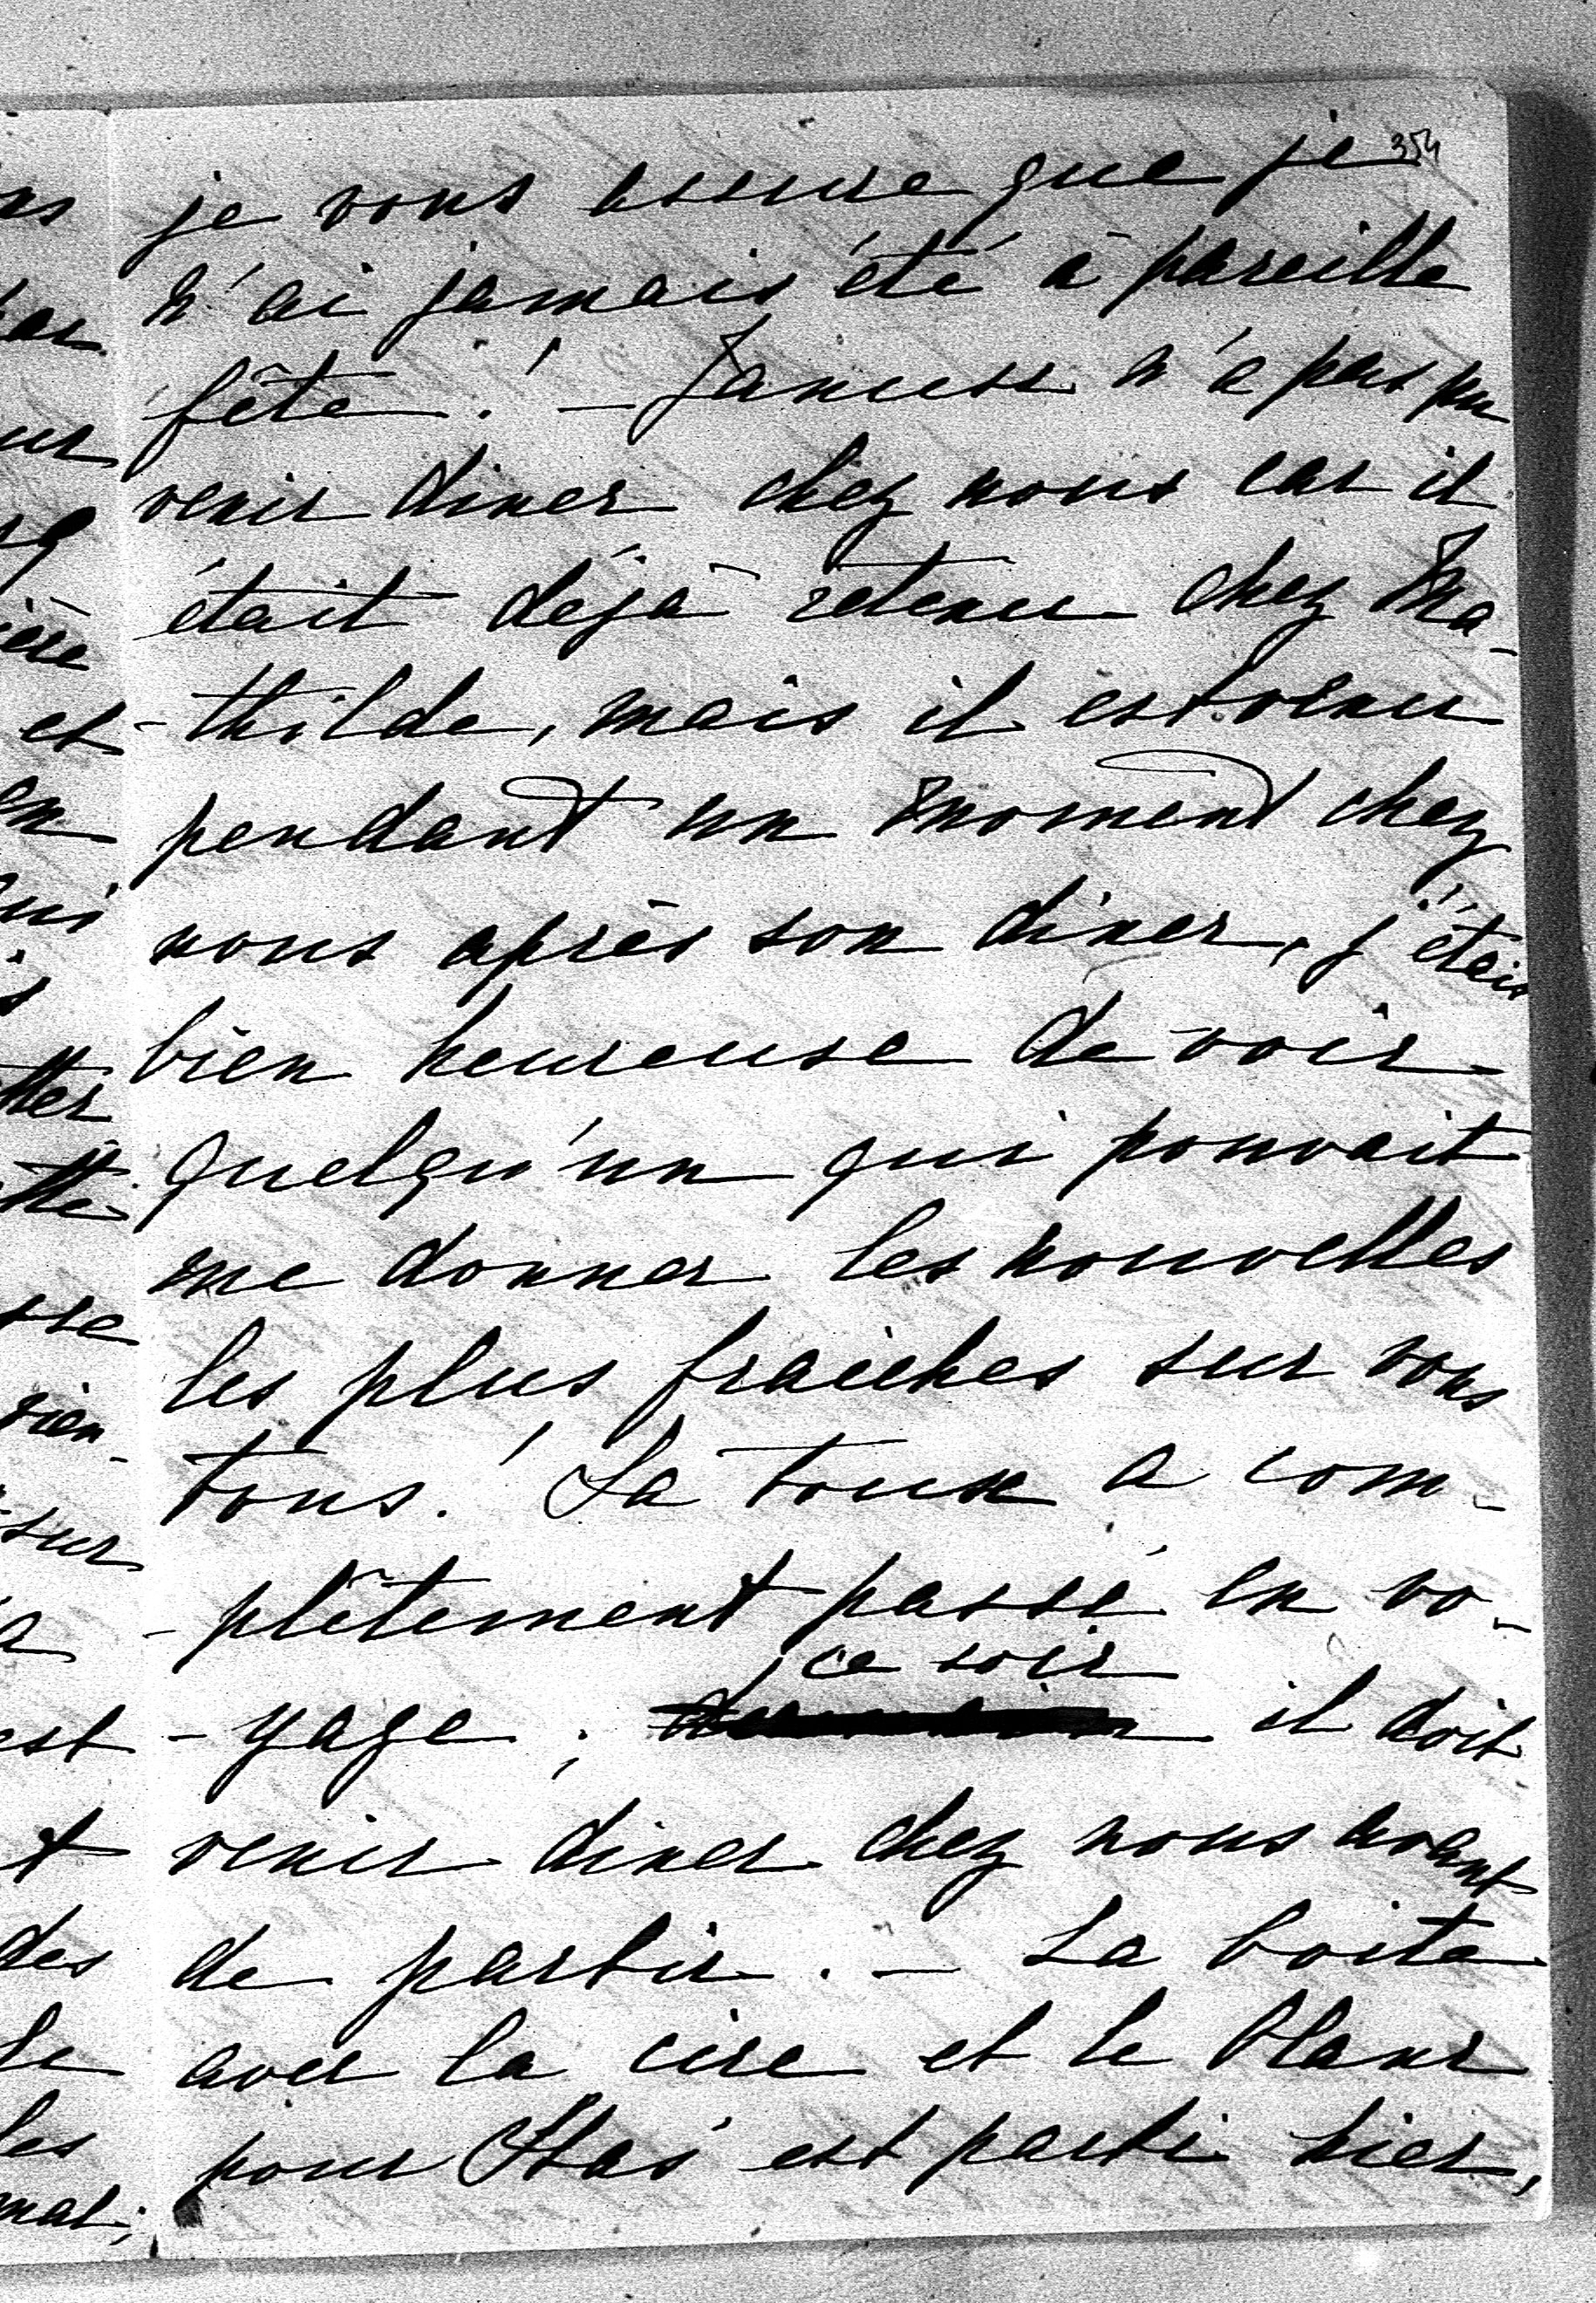 354
je vous assure que je
n'ai jamais été à pareille
fête! – Janusz n'a pas pu
venir diner chez nous car il
était déjà retenu chez Ma-
-thilde, mais il est venu
pendant un moment chez
nous après son diner, j'étais
bien heureuse de voir
quelqu'un qui pouvait
me donner les nouvelles
les plus fraiches sur vous
tous! Sa toux a com-
-plêtement passé en vo-
ce soir
-yage; il doit
venir diner chez nous avant
de partir. – La boite
avec la cire et le blanc
pour Staś est parti hier,
ns
par
ur
ière
et
en
qui
s
tter
tte
sse
vien-
-sur
a
est
t
des
le
les
mal;